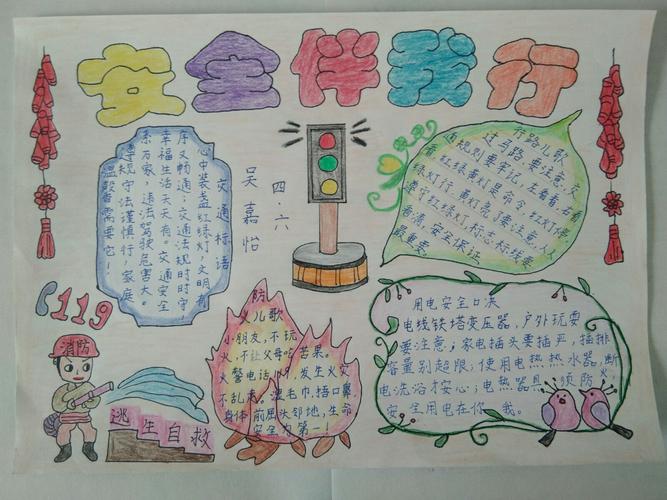 安全伴我行
交通标语
心中装盏红绿灯，文明有
序又畅通；交通法规时时守
幸福生活天天有。交通安全
系万家，违法驾驶危害大。
遵规守法谨慎行，家庭
温馨需要它！
四·六
吴嘉怡
行路儿歌
过马路，要注意，交
通规则要牢记，左看右看
看红绿黄灯是命令，红灯停
绿灯行，黄灯亮了要注意，人人
遵守红绿灯，标志标线要
看清，安全保证
最重要。
119
消防
逃生自救
防
火儿歌
小朋友，不玩
火，不让父母吃苦果。
火警电话119，发生火灾
不乱来。湿毛巾，捂口鼻，
身体前屈头邻地，生命
安全为第一！
用电安全口决
电线铁塔变压器，户外玩耍
要注意；家电插头要插严，插排
容量别超限；使用电热热水器，断
电洗浴才安心；电热器具须防火，
安全用电在你我。